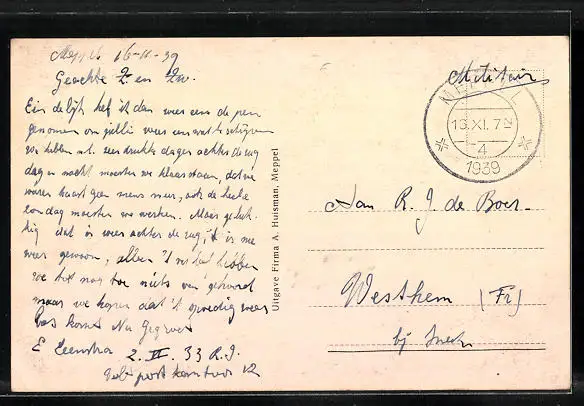 Meppel 16-11-39
Geachte Z. en Zw.
Eindelijk heb ik dan weer eens de pen
genomen om jullie weer eens wat te schrijven
we hebben n.l. zeer drukke dagen achter de rug
dag en nacht moesten we klaar staan, dat we
waren haast geen mens meer, ook de heele
Zondag moesten we werken. Maar geluk-
kig dat is weer achter de rug, 't is nu
weer gewoon, alleen 't verlof hebben
we tot nog toe niets van gehoord
maar we hopen dat 't spoedig weer
los komt Nu Gegroet
E Leenstra 2. II. 33 R.I.
Veldpost kantoor 12
Uitgave Firma A. Huisman, Meppel
Militair
MEPPEL
13.XI.7N
4
1939
Aan R. J. de Boer.
Westhem (Fr)
bij Sneek